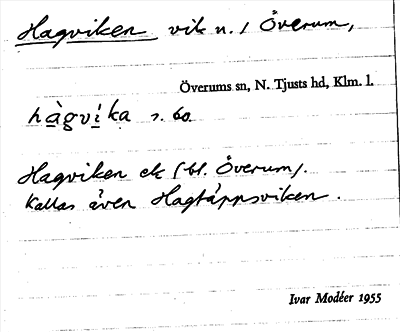 Hagviken vik n. / Överum,
Överums sn, N. Tjusts hd, Klm. l.
hàgvìka s. 60
Hagviken ek (bl. Överum).
Kallas även Hagtäppsviken.
Ivar Modéer 1955